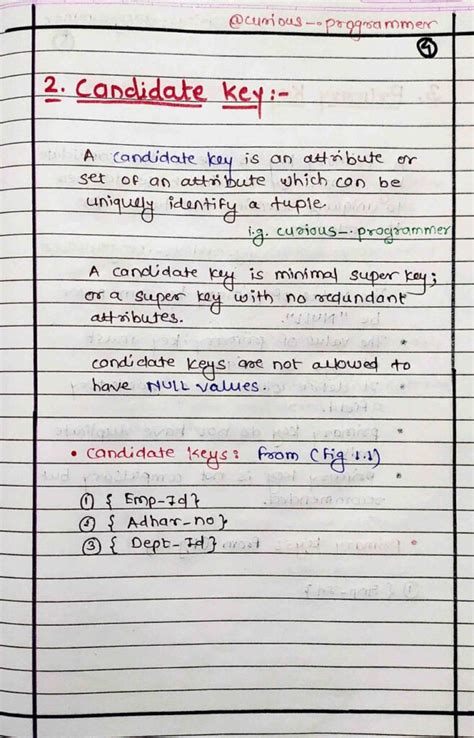 @curious_.programmer
4
2. Candidate key:-
A candidate key is an attribute or
set of an attribute which can be
uniquely identify a tuple.
i.g. curious_.programmer
A candidate key is minimal super key;
or a super key with no redundant
attributes.
candidate keys are not allowed to
have NULL values.
• candidate keys: from (Fig 1.1)
① { Emp-Id}
② { Adhar-no}
③ { Dept-Id}